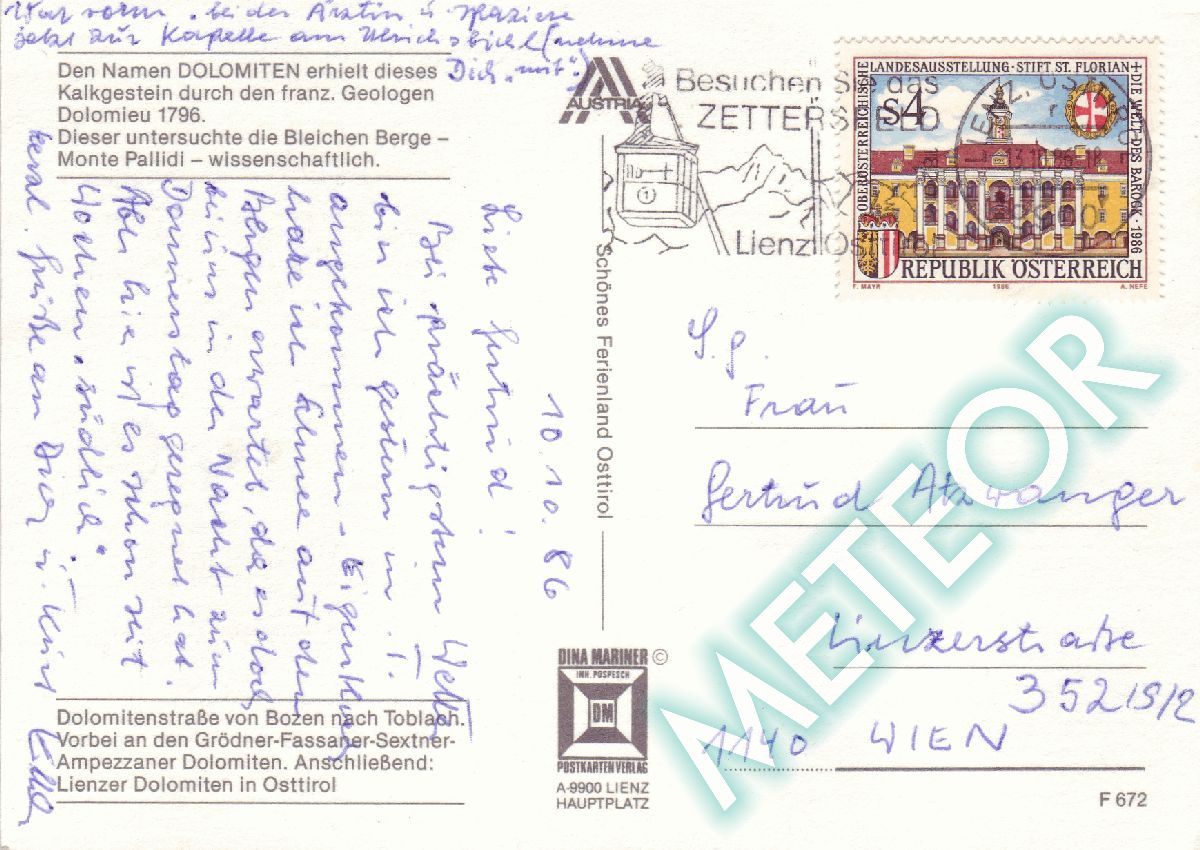 War vorm. bei der Ärztin u. spaziere
jetzt zur Kapelle am Ulrichsbichl (nehme
Dich "mit".)
Den Namen DOLOMITEN erhielt dieses
Kalkgestein durch den franz. Geologen
Dolomieu 1796.
Dieser untersuchte die Bleichen Berge –
Monte Pallidi – wissenschaftlich.
10.10.86
Liebe Gertrud!
Bei prächtigstem Wetter
bin ich gestern in T.
angekommen.
habe ich Schnee auf den
Bergen erwartet, da es doch
bei uns in der Nacht zum
Donnerstag geregnet hat.
Aber hier ist es schon seit
Wochen "südlich".
Grüße an Dich u. Kurt
Dolomitenstraße von Bozen nach Toblach.
Vorbei an den Grödner-Fassaner-Sextner-
Ampezzaner Dolomiten. Anschließend:
Lienzer Dolomiten in Osttirol
AUSTRIA
Schönes Ferienland Osttirol
DINA MARINER ©
INH. POSPESCH
DM
POSTKARTENVERLAG
A-9900 LIENZ
HAUPTPLATZ
Besuchen Sie das
ZETTERSFELD
Lienz/Osttirol
OBERÖSTERREICHISCHE LANDESAUSSTELLUNG · STIFT ST. FLORIAN + DIE WELT DES BAROCK · 1986
S4
REPUBLIK ÖSTERREICH
F. MAYR 1986 A. NEFE
S.g.
Frau
Gertrud Atzwanger
Linzerstraße
352/9/2
1140 WIEN
F 672
METEOR